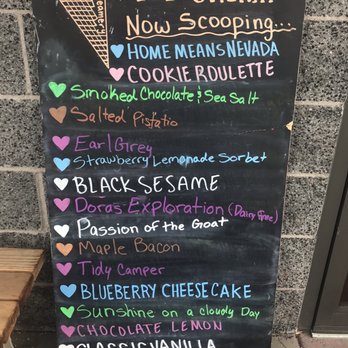 Now Scooping...
HOME MEANS NEVADA
COOKIE ROULETTE
Smoked Chocolate & Sea Salt
Salted Pistatio
Earl Grey
Strawberry Lemonade Sorbet
BLACK SESAME
Doras Exploration (Dairy free)
Passion of the Goat
Maple Bacon
Tidy Camper
BLUEBERRY CHEESECAKE
Sunshine on a cloudy Day
CHOCOLATE LEMON
CLASSIC VANILLA